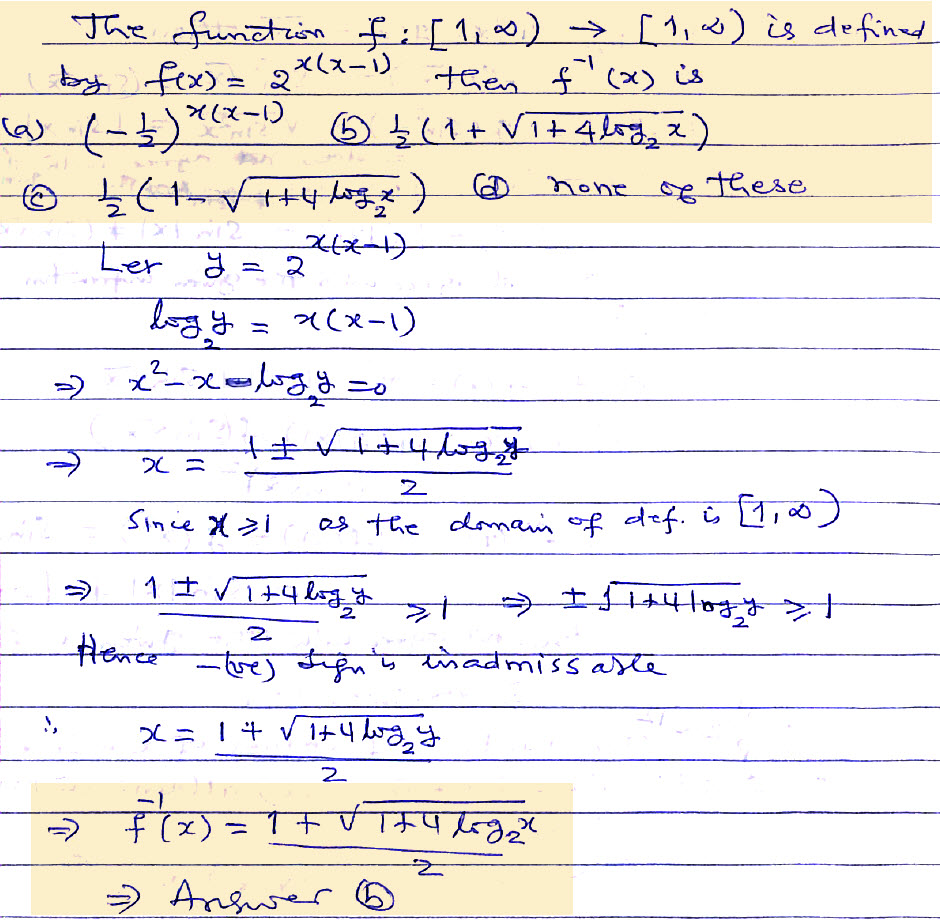 The function f : [1, ∞) → [1, ∞) is defined
by f(x) = 2^{x(x-1)} then f^{-1}(x) is
(a) (-1/2)^{x(x-1)} (b) 1/2 (1 + √(1+4log₂ x))
(c) 1/2 (1 - √(1+4 log₂ x)) (d) none of these
Let y = 2^{x(x-1)}
log₂ y = x(x-1)
⇒ x² - x - log₂ y = 0
⇒ x = (1 ± √(1+4 log₂ y))/2
Since x ≥ 1 as the domain of def. is [1, ∞)
⇒ (1 ± √(1+4 log₂ y))/2 ≥ 1 ⇒ ± √(1+4 log₂ y) ≥ 1
Hence -(ve) sign is inadmissable
∴ x = (1 + √(1+4 log₂ y))/2
⇒ f^{-1}(x) = (1 + √(1+4 log₂ x))/2
⇒ Answer (b)